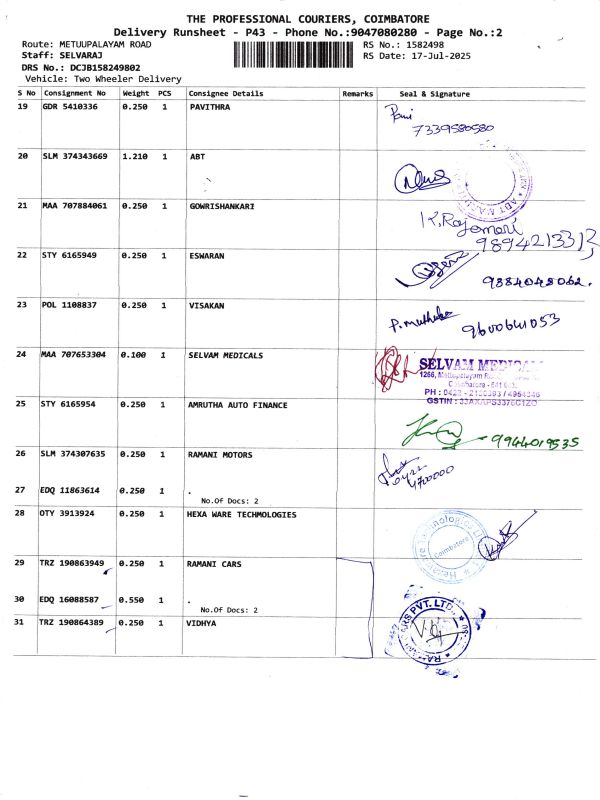 THE PROFESSIONAL COURIERS, COIMBATORE
Delivery Runsheet - P43 - Phone No.:9047080280 - Page No.:2
Route: METUUPALAYAM ROAD RS No.: 1582498
Staff: SELVARAJ RS Date: 17-Jul-2025
DRS No.: DCJB158249802
Vehicle: Two Wheeler Delivery
S No Consignment No Weight PCS Consignee Details Remarks Seal & Signature
19 GDR 5410336 0.250 1 PAVITHRA
7339580580
20 SLM 374343669 1.210 1 ABT
21 MAA 707884061 0.250 1 GOWRISHANKARI
K.Rajamari
9894213313
22 STY 6165949 0.250 1 ESWARAN
9884048062.
23 POL 1108837 0.250 1 VISAKAN
9600641053
24 MAA 707653304 0.100 1 SELVAM MEDICALS
SELVAM MEDICAL
25 STY 6165954 0.250 1 AMRUTHA AUTO FINANCE
9944019535
26 SLM 374307635 0.250 1 RAMANI MOTORS
4700000
27 EDQ 11863614 0.250 1 .
No.Of Docs: 2
28 OTY 3913924 0.250 1 HEXA WARE TECHMOLOGIES
Hexaware Technologies
Coimbatore
29 TRZ 190863949 0.250 1 RAMANI CARS
30 EDQ 16088587 0.550 1 .
No.Of Docs: 2
31 TRZ 190864389 0.250 1 VIDHYA
RAMANI CARS PVT. LTD.